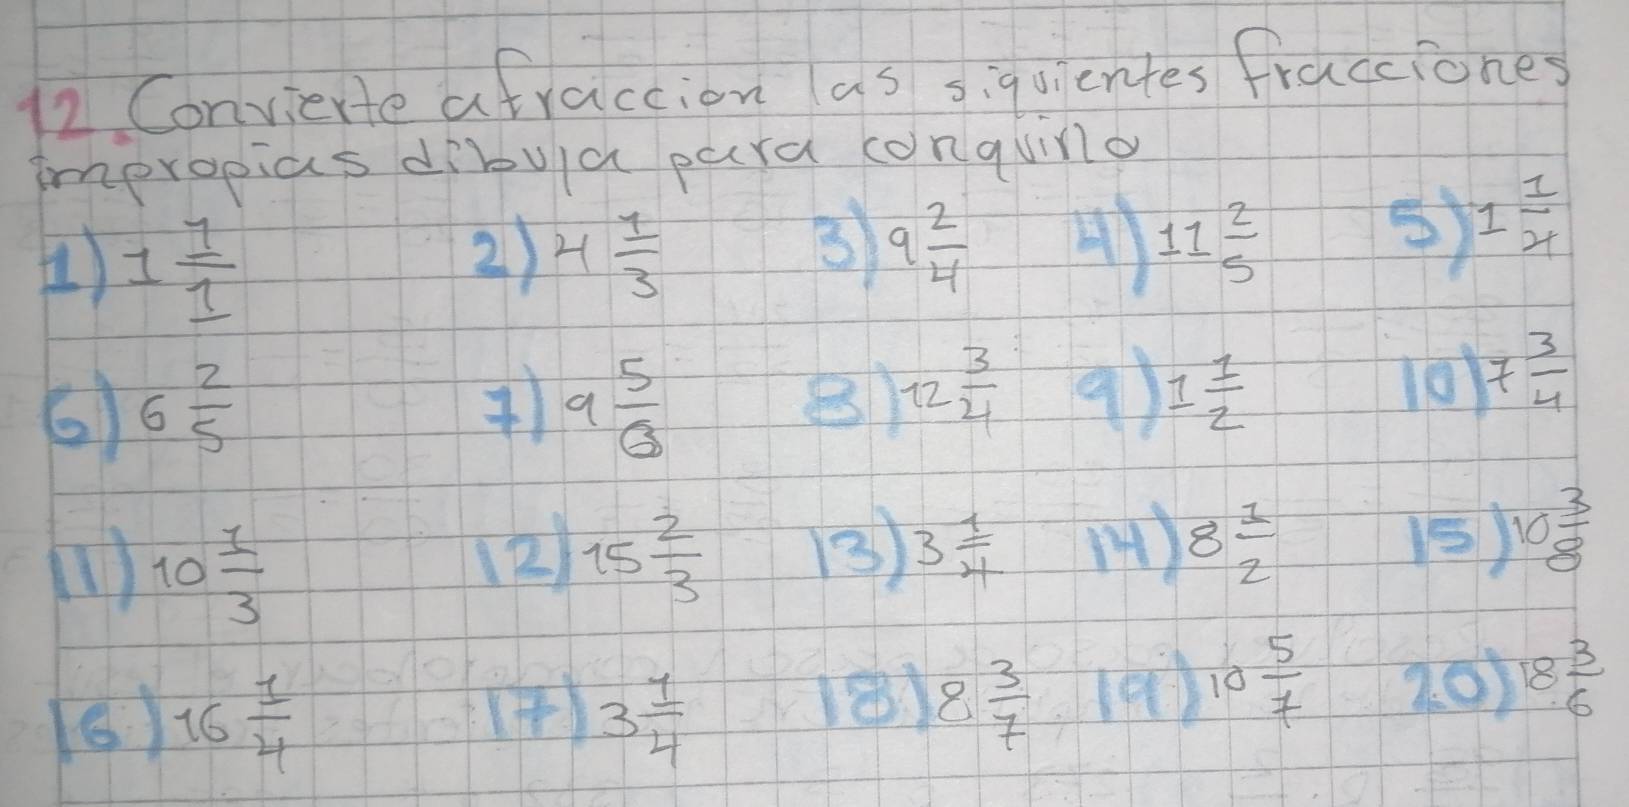 12. Convierte a fraccion las siguientes fracciones
impropias dibuja para
1) 1 1/1 2) 4 1/3 3) 9 2/4 4) 11 2/5 5) 1 1/4
6) 6 2/5 7) 9 5/6 8) 12 3/4 9) 1 1/2 10) 7 3/4
11) 10 1/3 12) 15 2/3 13) 3 1/4 14) 8 1/2 15) 10 3/8
16) 16 1/4 17) 3 1/4 18) 8 3/7 19) 10 5/7 20) 18 3/6